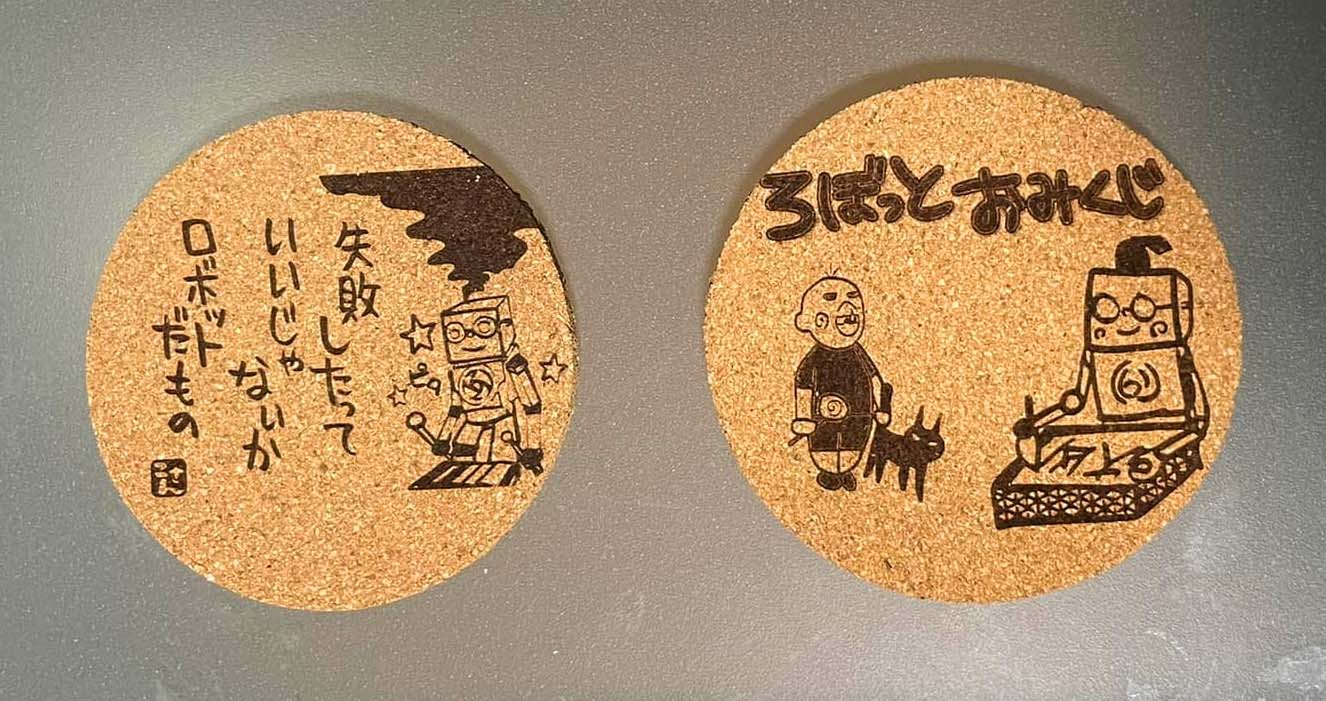 失敗したって
いいじゃないか
ロボット
だもの
ろぼっとおみくじ